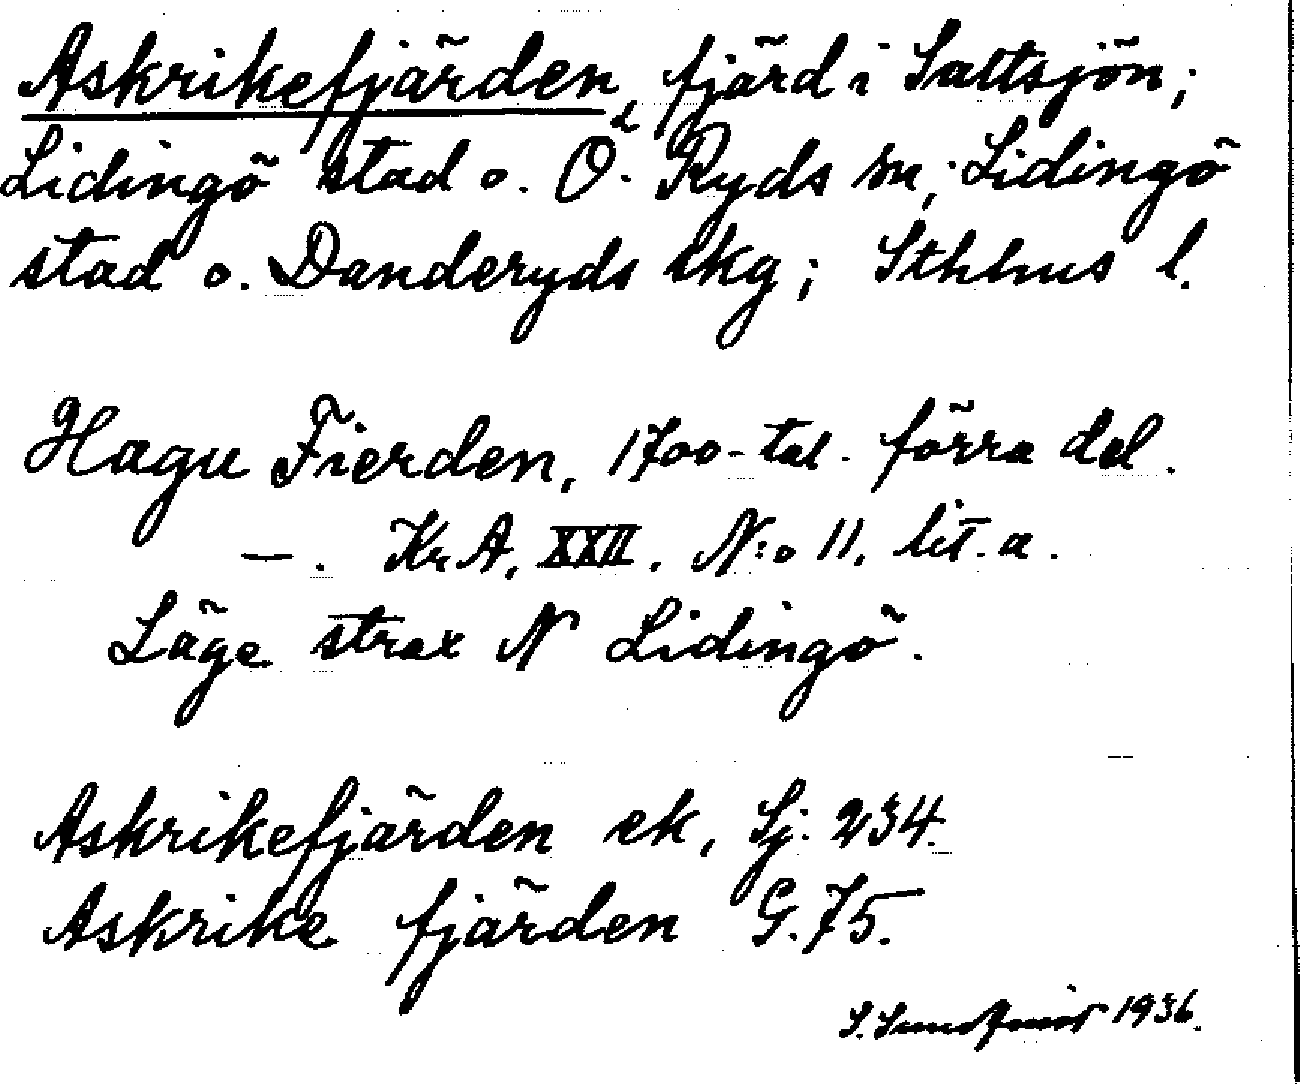 Askrikefjärden, fjärd i Saltsjön;
Lidingö stad o. Ö. Ryds sn, Lidingö
stad o. Danderyds skg; Sthlms l.
Hagu Fierden, 1700-tal. förra del.
—. Kr A, XXII. N:o 11. lit. a.
Läge strax N Lidingö.
Askrikefjärden ek, Sj. 234.
Askrike fjärden G. 75.
S. 1936.